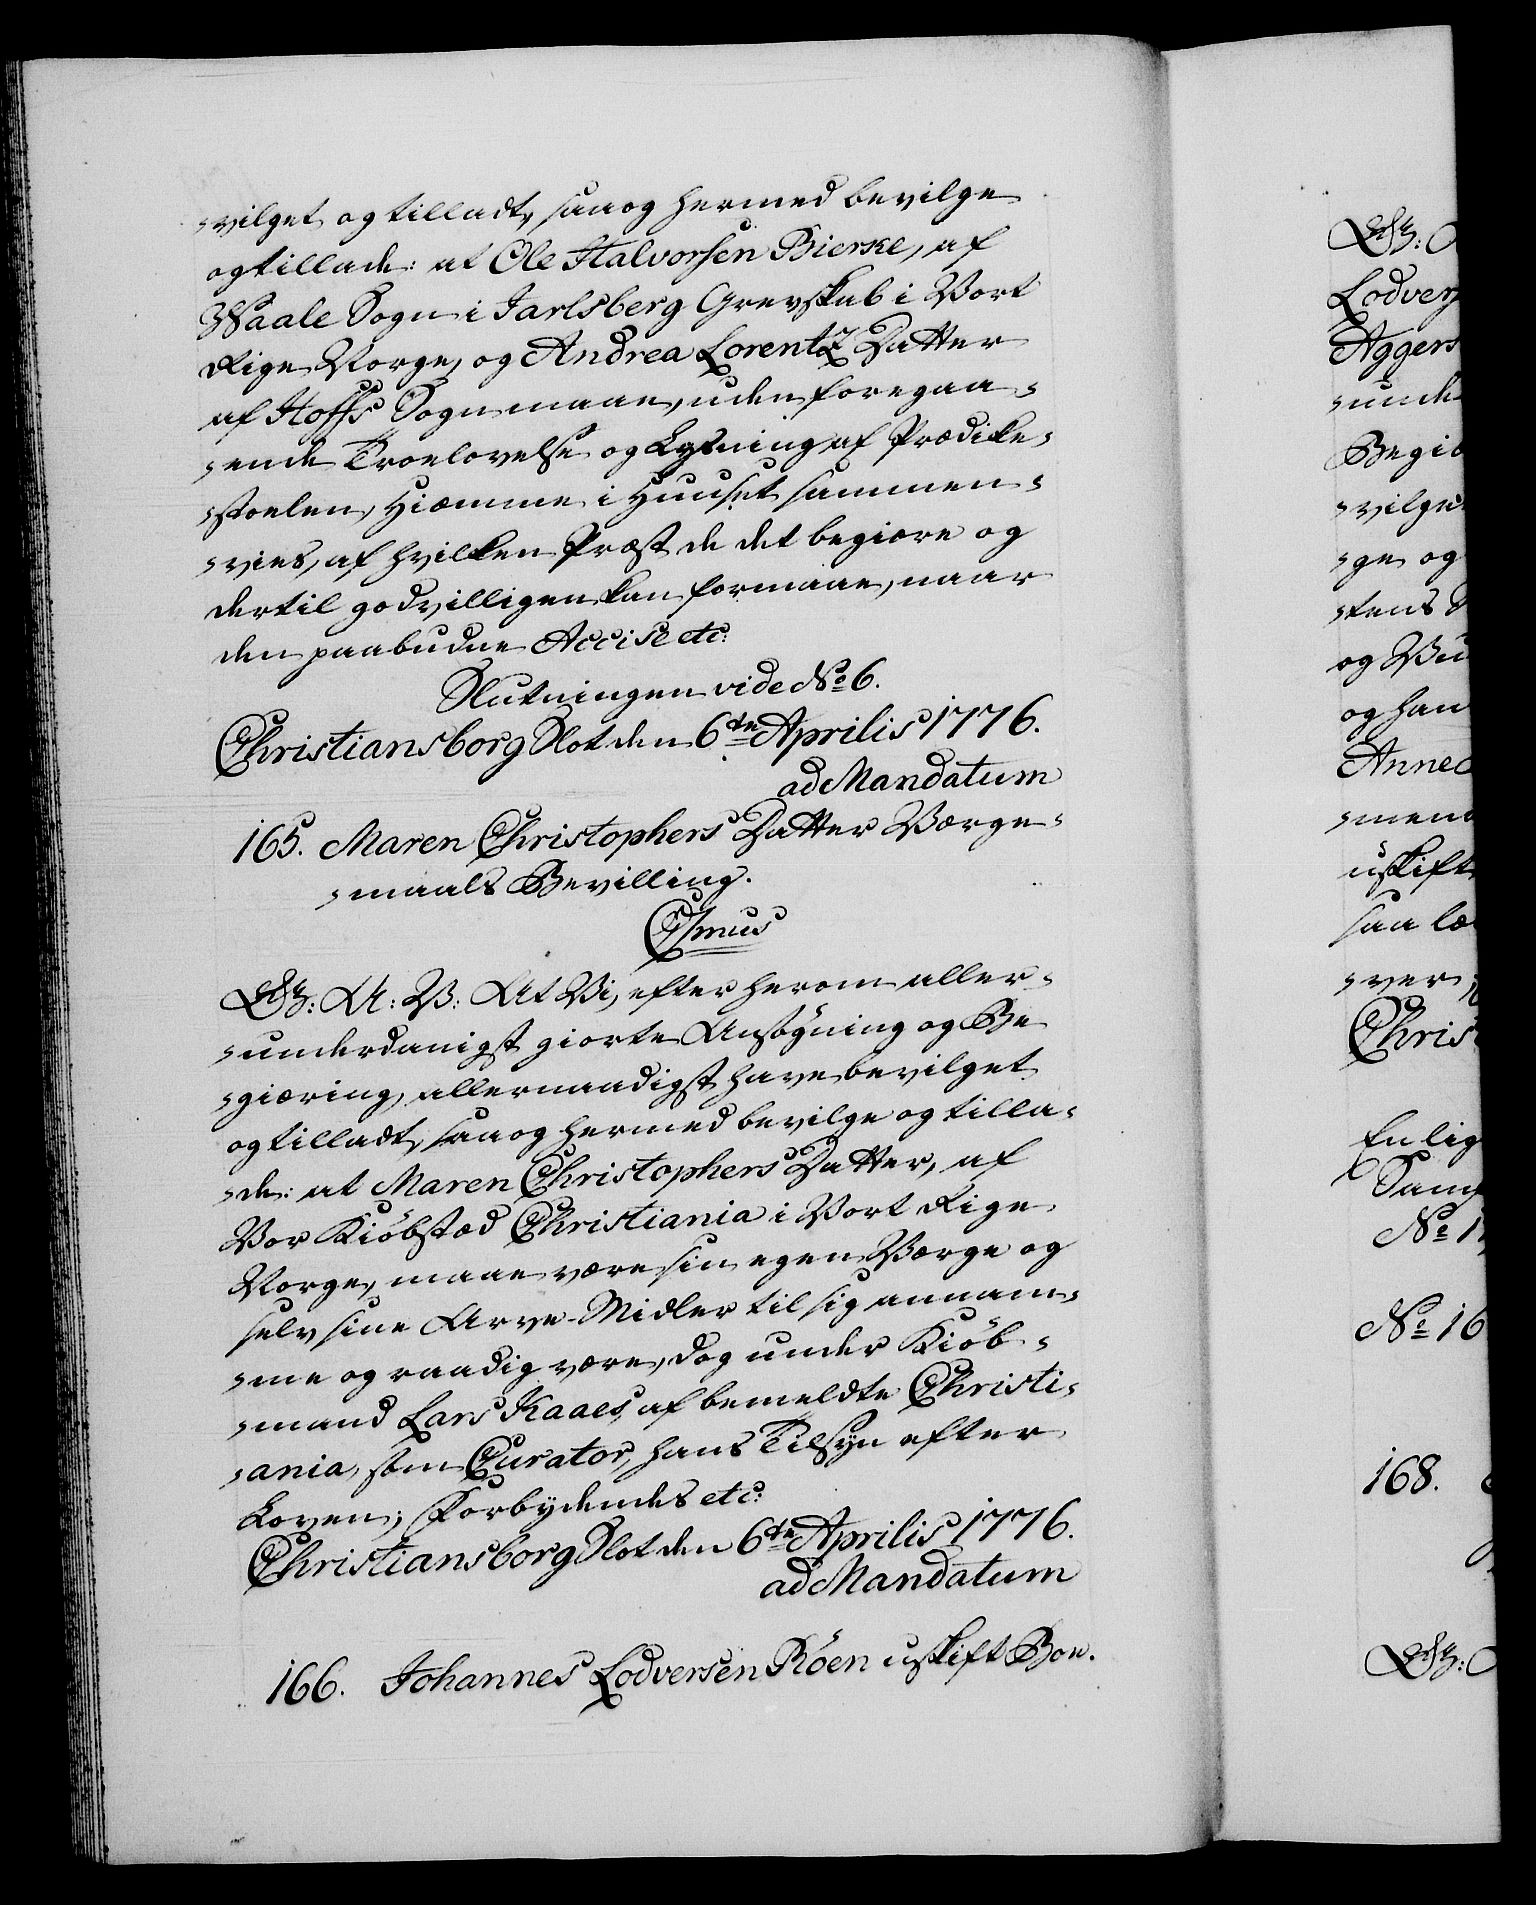 -vilget og tilladt, saa og hermed bevilge
og tillade: at Ole Halvorsen Bierke, af
Waale Sogn i Jarlsberg Grevskab i Vort
Rige Norge, og Andrea Lorentz Datter
af Hoffs Sogn maae, uden foregaa-
-ende Troelovelse og Lysning af Prædike-
-stoelen, Hiemme i Huuset sammen-
-vies, af hvilken Præst de det begiære og
dertil godvilligen kan formaae, naar
den paabudne Accise etc:
Slutningen vide No 6.
Christiansborg Slot den 6te Aprilis 1776.
ad Mandatum
165. Maren Christophers Datter Værge-
-maals Bevilling.
C7mus
G: A: V: At Vi, efter herom aller-
-underdanigst giorte Ansøgning og Be
-giæring, allernaadigst have bevilget
og tilladt, saa og hermed bevilge og tilla-
-de: at Maren Christophers Datter, af
Vor Kiøbstæd Christiania i Vort Rige
Norge, maae være sin egen Værge og
selv sine Arve-Midler til sig annam-
-me og raadig være, dog under Kiøb-
-mand Lars Kaaes, af bemeldte Christi-
-ania, som Curator, hans Tilsyn efter
Loven; Forbydendes etc:
Christiansborg Slot den 6te Aprilis 1776.
ad Mandatum
166. Johannes Lodversen Röen uskift Boe.
Lodver
Aggers
-unde
Begi
-vilge
-ge og
og han
uskift
saa læ
-ver
Chris
En lig
No 1
No 16
168.